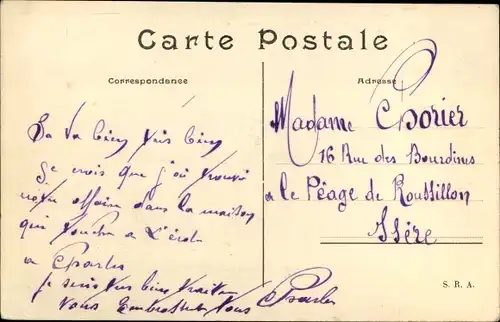 Carte Postale
Correspondance
Sa va bien très bien
je crois que j'ai trouvé
notre affaire dans la maison
qui touche a L'école
a Charles
je suis très bien
Vous Vous Charles
Adresse
Madame
16 Rue des Bourdines
a le Péage de Roussillon
Isère
S. R. A.